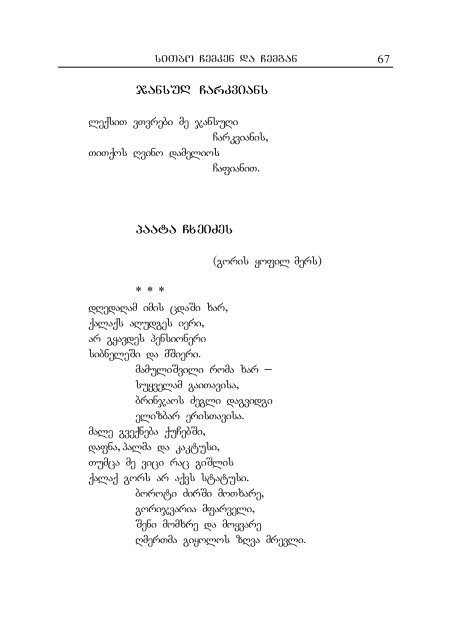 სითბო ჩემკენ და ჩემგან 67
ჯანსუღ ჩარკვიანს
ლექსით ვთვრები მე ჯანსუღი
ჩარკვიანის,
თითქოს ღვინო დამელიოს
ჩაფიანით.
პაატა ჩხეიძეს
(გორის ყოფილ მერს)
* * *
დღედაღამ იმის ცდაში ხარ,
ქალაქს აღუდგეს იერი,
არ გყავდეს პენსიონერი
სიბნელეში და მშიერი.
მამულიშვილი რომა ხარ –
სუყველამ გაითავისა,
ბრინჯაოს ძეგლი დაგვიდგი
ელიზბარ ერისთავისა.
მალე გვექნება ქუჩებში,
დაფნა, პალმა და კაკტუსი,
თუმცა მე ვიცი რაც გიშლის
ქალაქ გორს არ აქვს სტატუსი.
ბოროტი ძირში მოთხარე,
გორიჯვარია მფარველი,
შენი მომხრე და მოყვარე
ღმერთმა გიყოლოს ზღვა მრევლი.